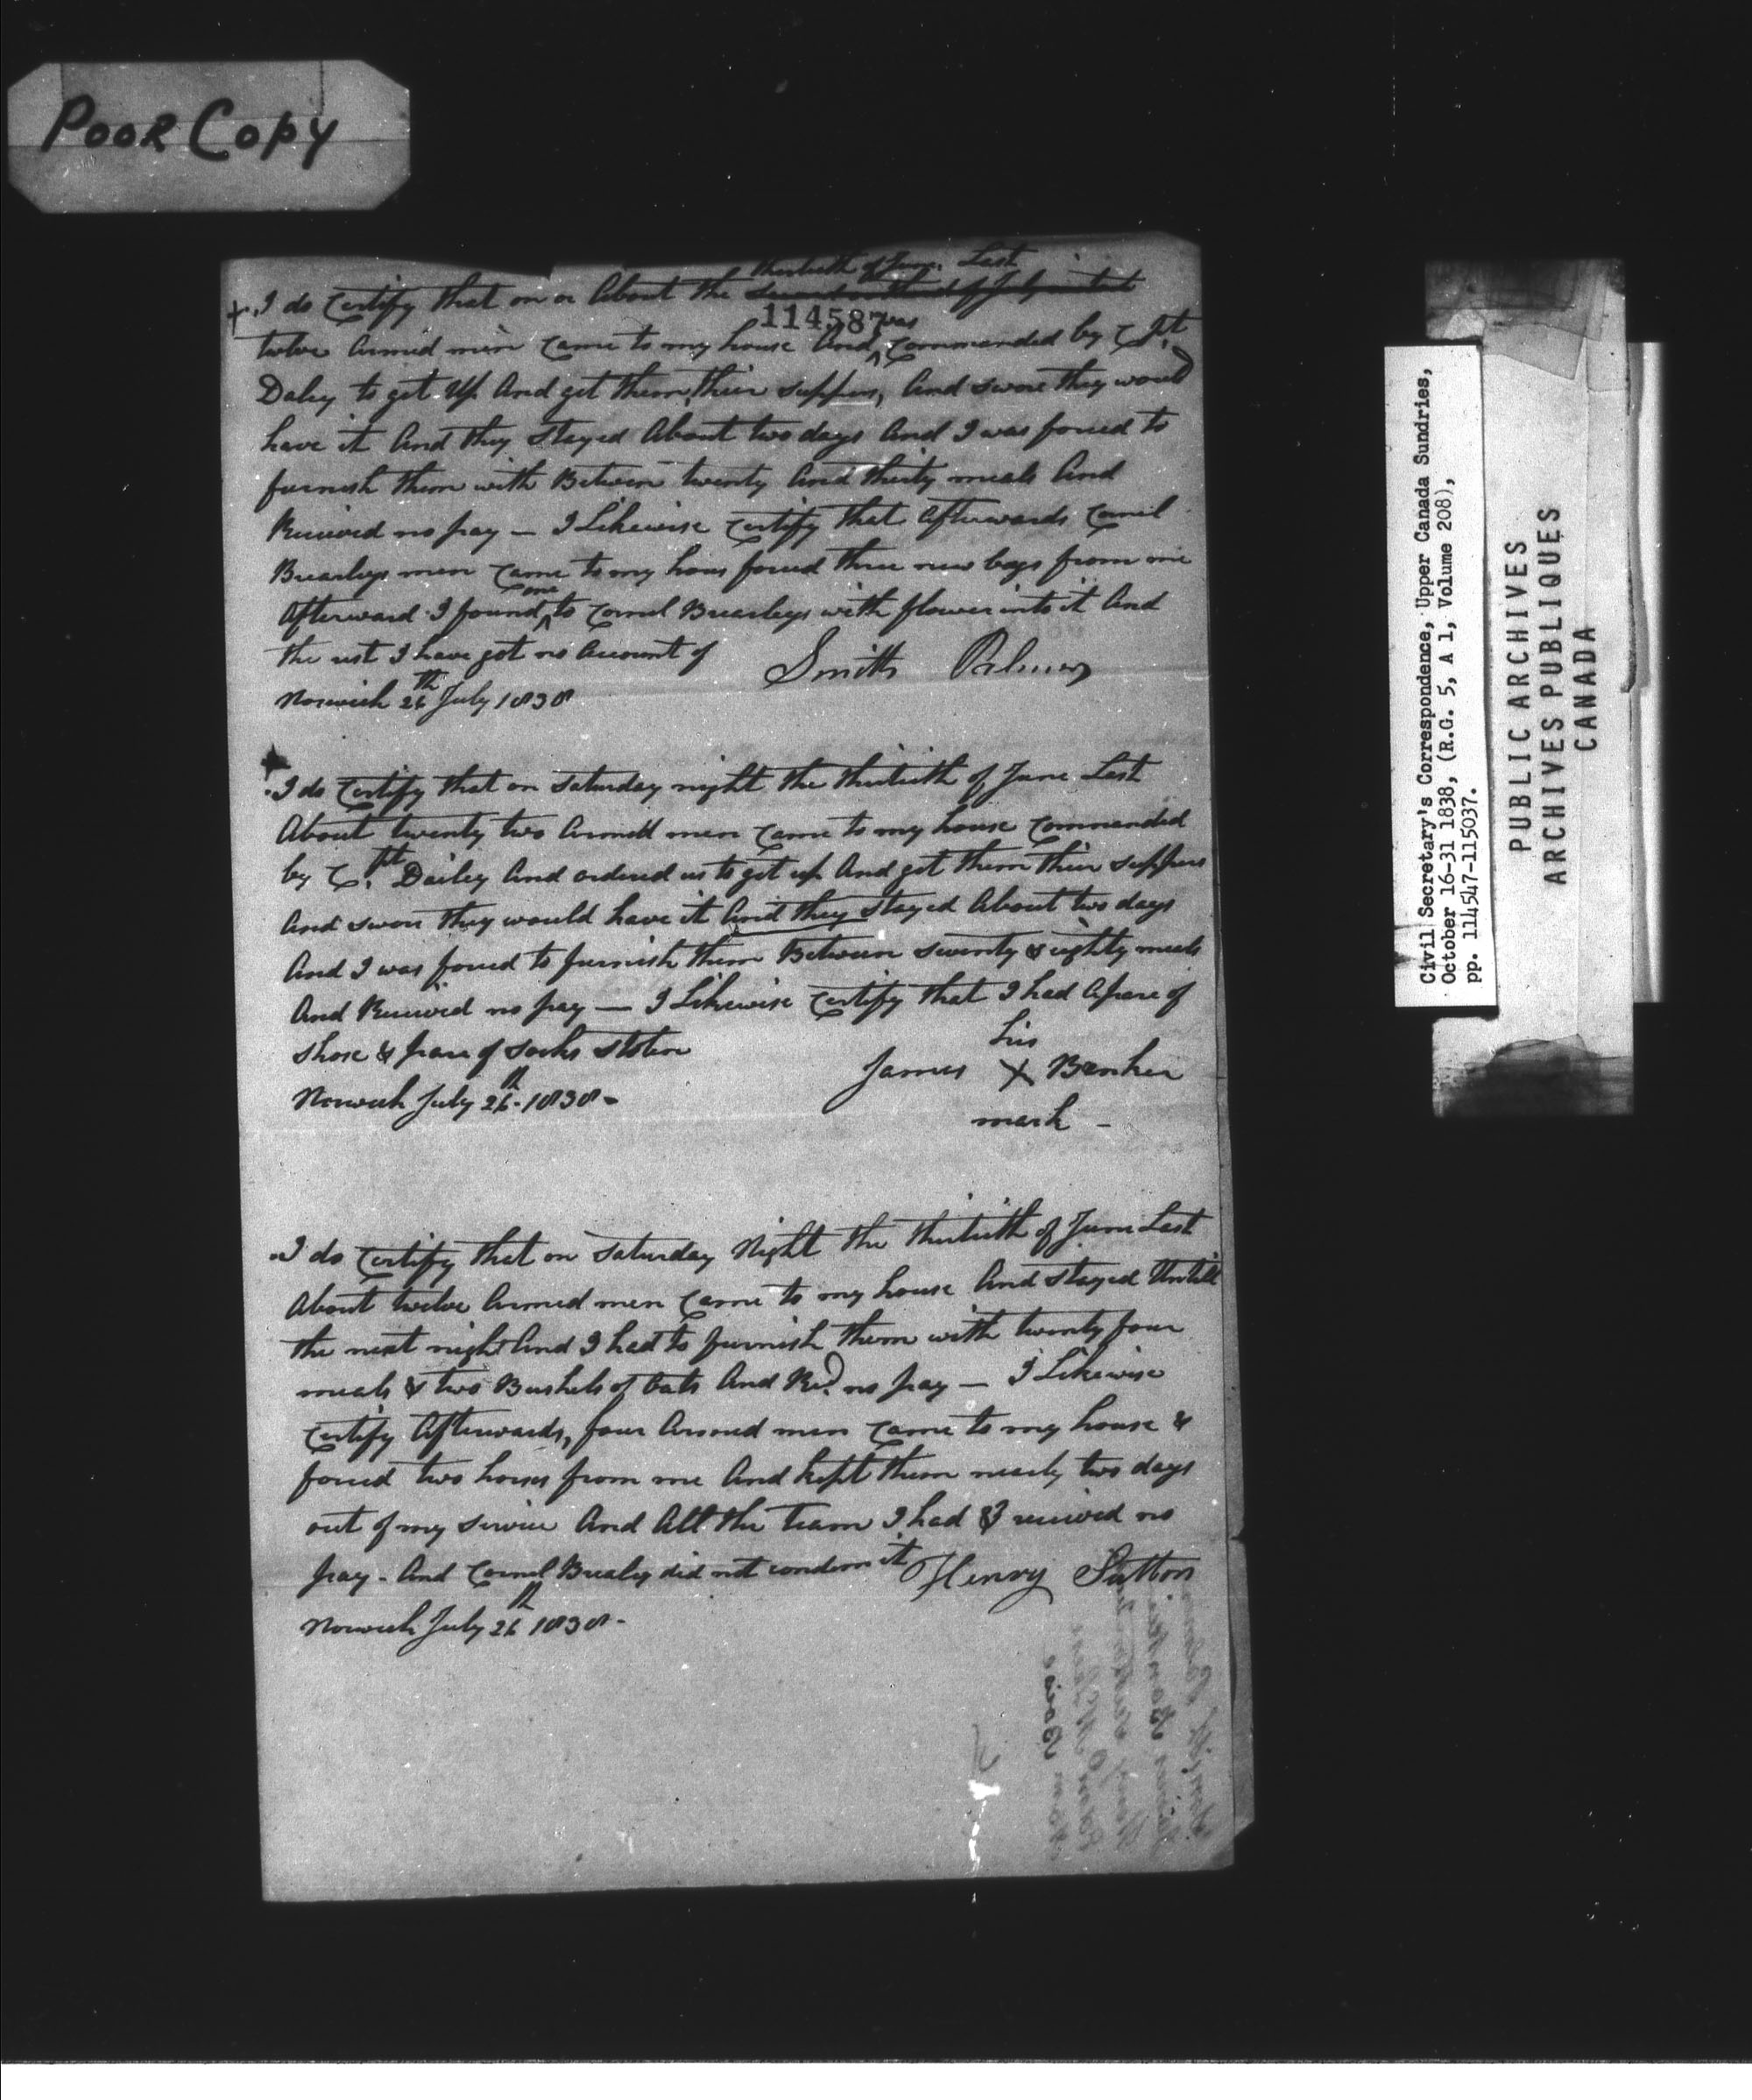 Poor Copy
thirtieth of June Last
+ I do Certify that on or About the second or third of July instant
114587
was
twelve Armed men Came to my house And Commanded by Cpt.
Daley to get Up And get them their suppers, And swore they would
have it And they Stayed About two days And I was forced to
furnish them with Between twenty And thirty meals And
Received no pay — I Likewise Certify that Afterwards Cornel
Brearleys men Came to my hous forced three new bags from me
one
Afterward I found to Cornel Brearleys with flower into it And
the rest I have got no Account of
Smith Palmer
Norwich 26th July 1838
I do Certify that on Saturday night the thirtieth of June Last
About twenty two Armed men Came to my house Commanded
by Cpt. Dailey And ordered us to get up And get them their suppers
And swore they would have it And they Stayed About two days
And I was forced to furnish them Between seventy & eighty meals
And Received no pay — I Likewise Certify that I had A pare of
shose & pare of socks stolen
his
James X Barker
mark -
Norwich July 26th 1838 -
I do Certify that on Saturday Night the thirtieth of June Last
About twelve Armed men Came to my house And stayed Untill
the next night And I had to furnish them with twenty four
meals & two Bushels of Oats And Recd. no pay — I Likewise
Certify Afterwards, four Armed men Came to my house &
forced two horses from me And kept them nearly two days
out of my servise And All the team I had & I received no
pay - And Cornel Brealey did not condem it
Henry Sutton
Norwich July 26th 1838 -
Civil Secretary's Correspondence, Upper Canada Sundries,
October 16-31 1838, (R.G. 5, A 1, Volume 208),
pp. 114547-115037.
PUBLIC ARCHIVES
ARCHIVES PUBLIQUES
CANADA